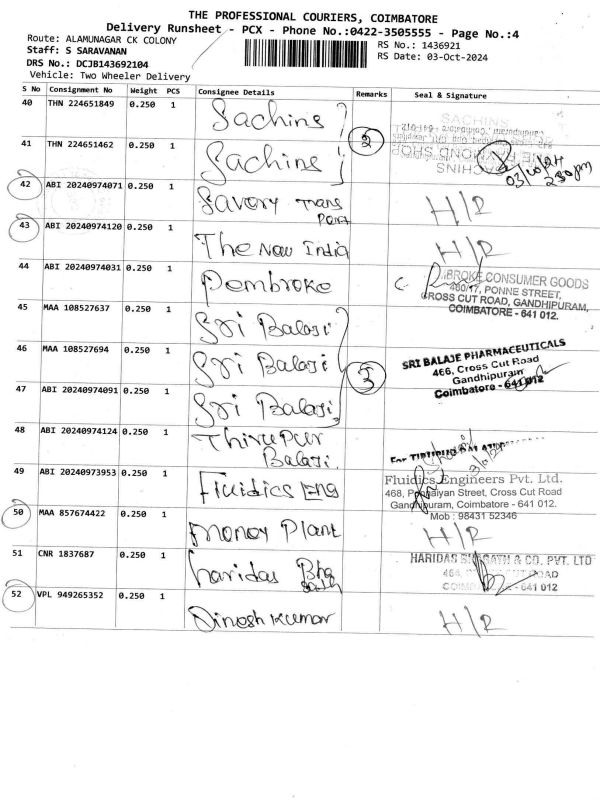 THE PROFESSIONAL COURIERS, COIMBATORE
Delivery Runsheet - PCX - Phone No.:0422-3505555 - Page No.:4
Route: ALAMUNAGAR CK COLONY
RS No.: 1436921
Staff: S SARAVANAN
RS Date: 03-Oct-2024
DRS No.: DCJB143692104
Vehicle: Two Wheeler Delivery
S No Consignment No Weight PCS Consignee Details Remarks Seal & Signature
40 THN 224651849 0.250 1 Sachins
SACHINS
41 THN 224651462 0.250 1 Sachins 2
SACHINS
03/10/24
2:30pm
42 ABI 20240974071 0.250 1 Savory Trans Port H/R
43 ABI 20240974120 0.250 1 The New India H/R
44 ABI 20240974031 0.250 1 Pembroke
BROKE CONSUMER GOODS
460/17, PONNE STREET,
CROSS CUT ROAD, GANDHIPURAM,
COIMBATORE - 641 012.
45 MAA 108527637 0.250 1 Sri Balaji
46 MAA 108527694 0.250 1 Sri Balaji 3
SRI BALAJE PHARMACEUTICALS
466, Cross Cut Road
Gandhipuram
Coimbatore - 641 012
47 ABI 20240974091 0.250 1 Sri Balaji
48 ABI 20240974124 0.250 1 Thirupur Balaji
49 ABI 20240973953 0.250 1 Fluidics Eng
Fluidics Engineers Pvt. Ltd.
468, Ponnaiyan Street, Cross Cut Road
Gandhipuram, Coimbatore - 641 012.
Mob : 98431 52346
50 MAA 857674422 0.250 1 Money Plant H/R
51 CNR 1837687 0.250 1 haridas
HARIDAS BHAGATH & CO. PVT. LTD
ROAD
641 012
52 VPL 949265352 0.250 1 Dinesh Kumar H/R